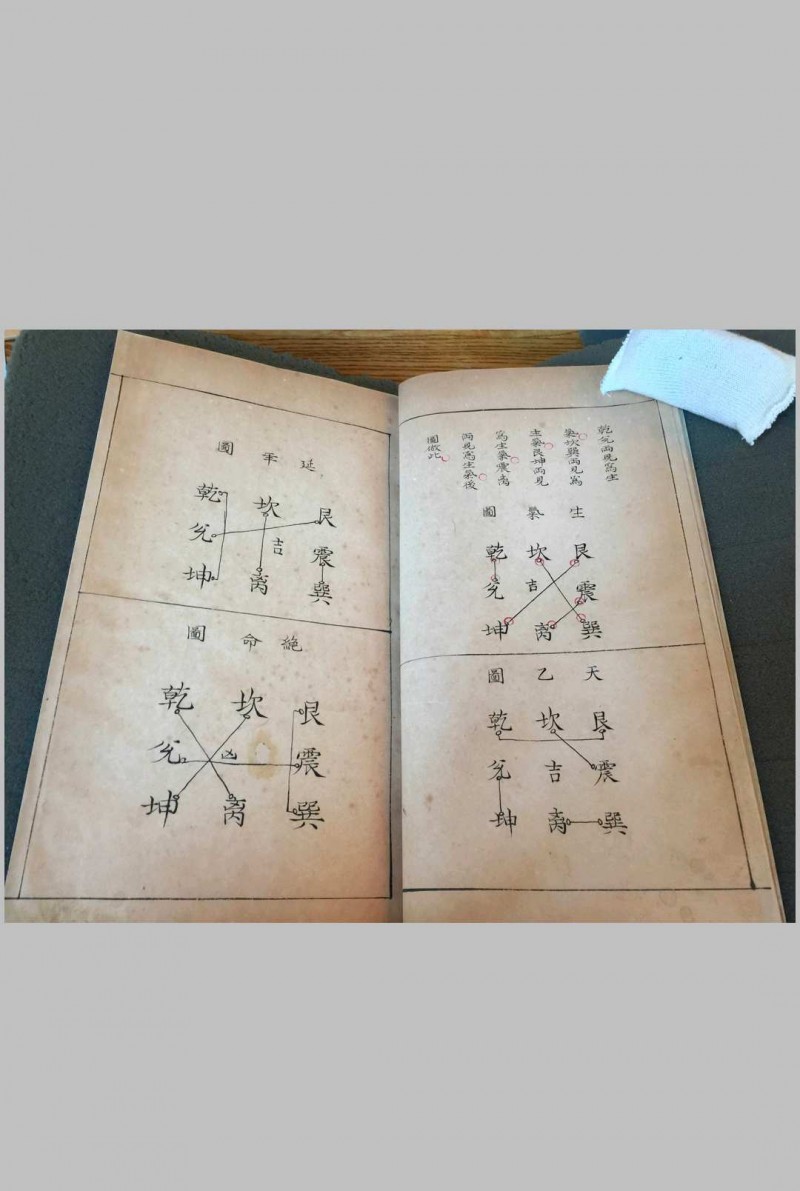 乾兊兩見爲生
炁坎巽兩見爲
生炁艮坤兩見
爲生炁震离
兩見爲生炁後
圖倣此
生炁圖
艮 坎 乾
震 吉 兊
巽 离 坤
天乙圖
艮 坎 乾
震 吉 兊
巽 离 坤
延年圖
艮 坎 乾
震 吉 兊
巽 离 坤
絕命圖
艮 坎 乾
震 凶 兊
巽 离 坤